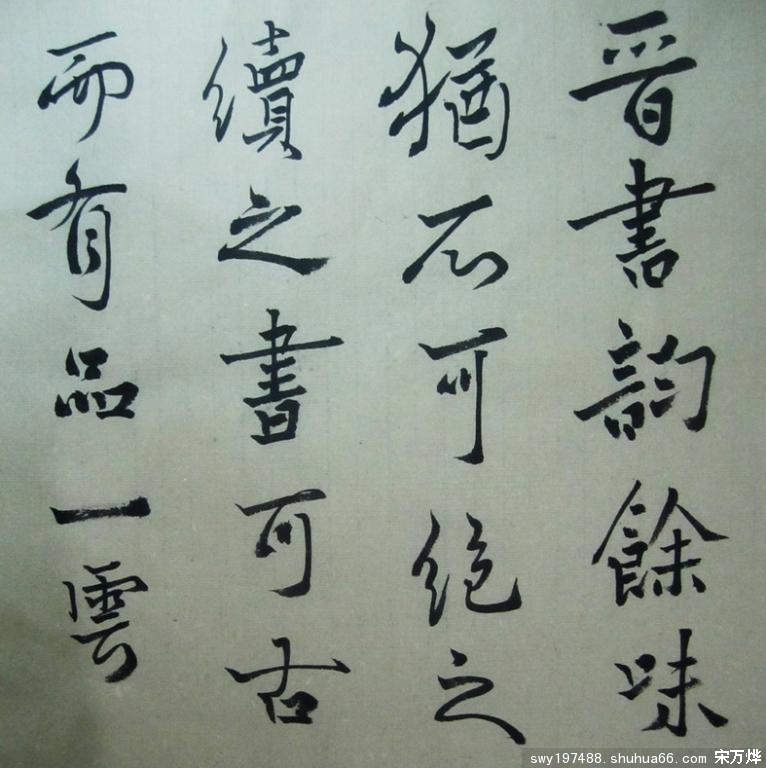 晋書韵餘味
猶不可絶之
續之書可古
而有品一雲
swy197488.shuhua66.com 宋万烨